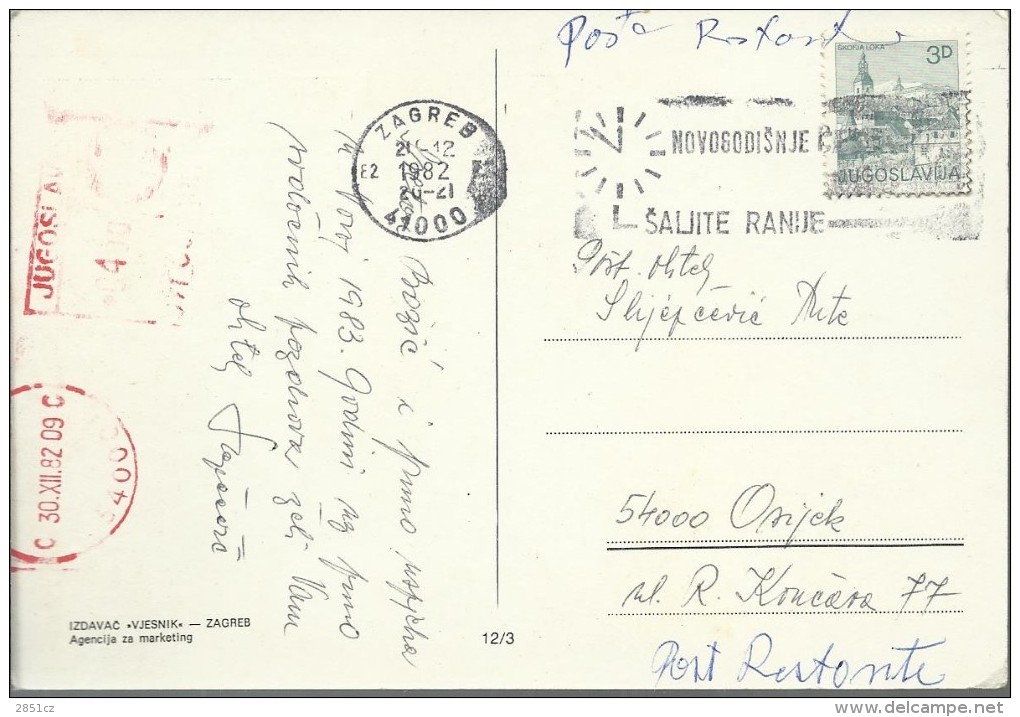 Pošta Restant
ŠKOFJA LOKA
3D
JUGOSLAVIJA
NOVOGODIŠNJE
ŠALJITE RANIJE
ZAGREB
12
82 1982
20-21
41000
JUGOSLAV
0400
C 30.XII.82 09 C
54000
Sretan
Božić i puno uspjeha
u Novoj 1983. Godini uz puno
srdačnih pozdrava želi Vam
obitelj
Pošt. obitelj
Slijepčević Ante
54000 Osijek
ul. R. Končara 77
Post Restante
IZDAVAČ »VJESNIK« — ZAGREB
Agencija za marketing
12/3
2851cz
delcampe.net